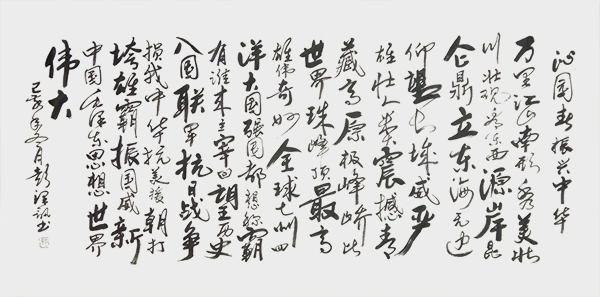 沁园春 振兴中华
万里江山南北秀美壮
川壮观 东西源岸昆
仑鼎立东海无边
仰望长城威严
雄壮人类震撼青
藏高原极峰峤比
世界珠峰顶最高
雄伟奇妙全球七洲四
洋大国强国都称霸
有谁来主宰回望历史
八国联军抗日战争
损我中华抗美援朝打
垮雄霸振国威新
中国毛泽东思想世界
伟大
己亥年 月彭 书